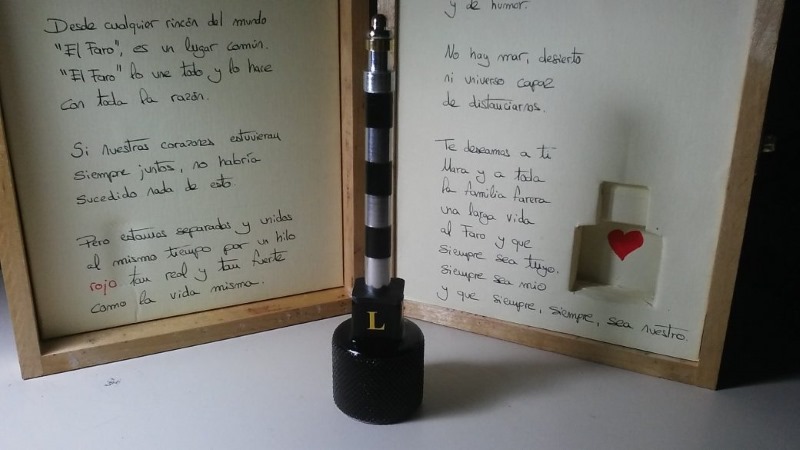 Desde cualquier rincón del mundo
"El Faro", es un lugar común.
"El Faro" lo une todo y lo hace
con toda la razón.
Si nuestros corazones estuvieran
siempre juntos, no habría
sucedido nada de esto.
Pero estamos separados y unidos
al mismo tiempo por un hilo
rojo tan real y tan fuerte
como la vida misma.
y de humor.
No hay mar, desierto
ni universo capaz
de distanciarnos.
Te deseamos a ti
Mara y a toda
la familia farera
una larga vida
al Faro y que
siempre sea tuyo.
siempre sea mío
y que siempre, siempre, sea nuestro.
L